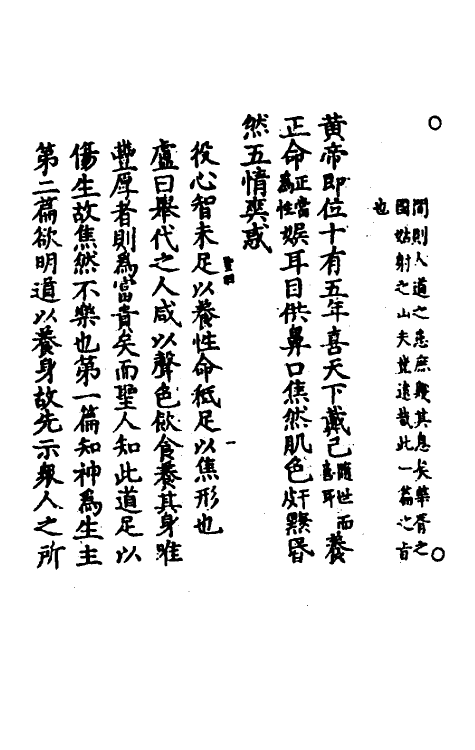 間則人道之患庶幾其息矣華胥之
國姑射之山夫豈遠哉此一篇之旨
也
黃帝即位十有五年喜天下戴己隨世喜耳而養
正命正當為性娛耳目供鼻口焦然肌色皯黣昏
然五情爽惑
役心智未足以養性命秪足以焦形也
盧曰舉代之人咸以聲色飲食養其身唯
豐厚者則為富貴矣而聖人知此道足以
傷生故焦然不樂也第一篇知神為生主
第二篇欲明道以養身故先示眾人之所